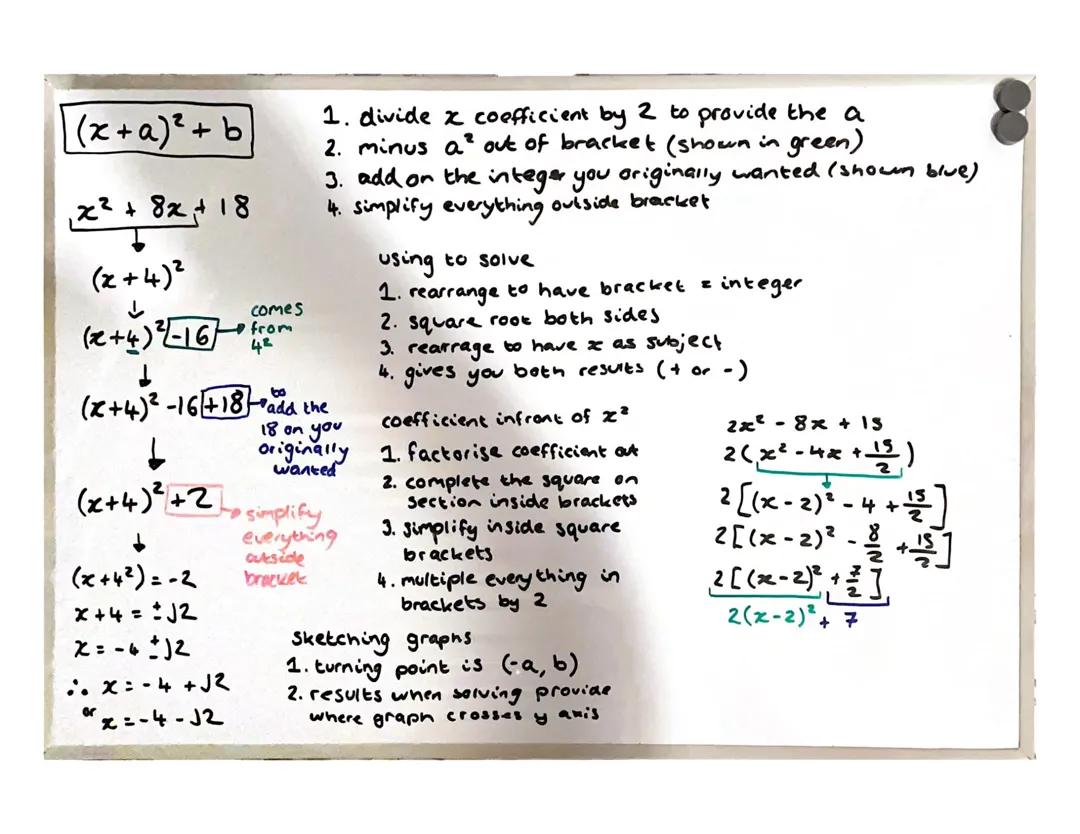 (x+a)² + b
1. divide x coefficient by 2 to provide the a
2. minus a² out of bracket (shown in green)
3. add on the integer you originally wanted (shown blue)
4. simplify everything outside bracket
x² + 8x + 18
(x+4)²
(x+4)² -16
comes
from
4²
(x+4)² -16 +18
to
add the
18 on you
originally
wanted
(x+4)² +2
simplify
everything
outside
bracket
(x+4²) = -2
x+4 = ±√2
x = -4 ±√2
∴ x = -4 +√2
or x = -4 -√2
using to solve
1. rearrange to have bracket = integer
2. square root both sides
3. rearrage to have x as subject
4. gives you both results (+ or -)
coefficient infront of x²
1. factorise coefficient out
2. complete the square on
section inside brackets
3. simplify inside square
brackets
4. multiple everything in
brackets by 2
2x² - 8x + 15
2(x² - 4x + 15/2)
2[(x-2)² - 4 + 15/2]
2[(x-2)² - 8/2 + 15/2]
2[(x-2)² + 7/2]
2(x-2)² + 7
Sketching graphs
1. turning point is (-a, b)
2. results when solving provide
where graph crosses y axis